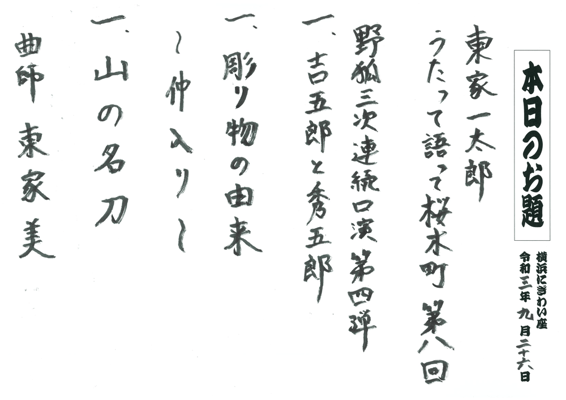 本日のお題
横浜にぎわい座
令和三年 九月二十六日
東家一太郎
うたって語って桜木町 第八回
野狐三次連続口演 第四弾
一、吉五郎と秀五郎
一、彫り物の由来
～仲入り～
一、山の名刀
曲師 東家美